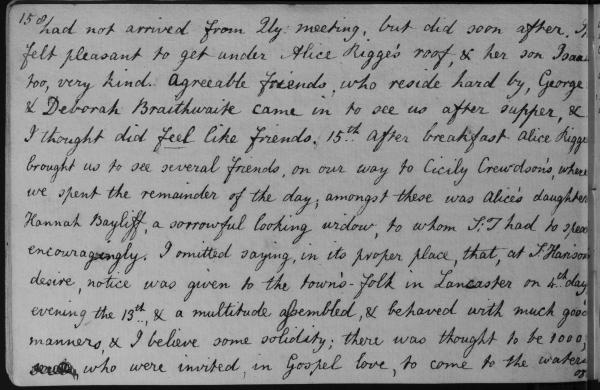 158
had not arrived from Qly meeting, but did soon after. It
felt pleasant to get under Alice Rigge's roof, & her son Isaac
too, very kind. Agreeable friends, who reside hard by, George
& Deborah Braithwaite came in to see us after supper, &
I thought did feel like friends. 15th After breakfast Alice Rigge
brought us to see several friends, on our way to Cicily Crewdson's, where
we spent the remainder of the day; amongst these was Alice's daughter
Hannah Bayliff, a sorrowful looking widow, to whom S:T had to speak
encouragingly. I omitted saying, in its proper place, that, at S Harison
desire, notice was given to the town's-folk in Lancaster on 4th day
evening the 13th, & a multitude assembled, & behaved with much good
manners, & I believe some solidity; there was thought to be 1000,
who were invited, in Gospel love, to come to the waters